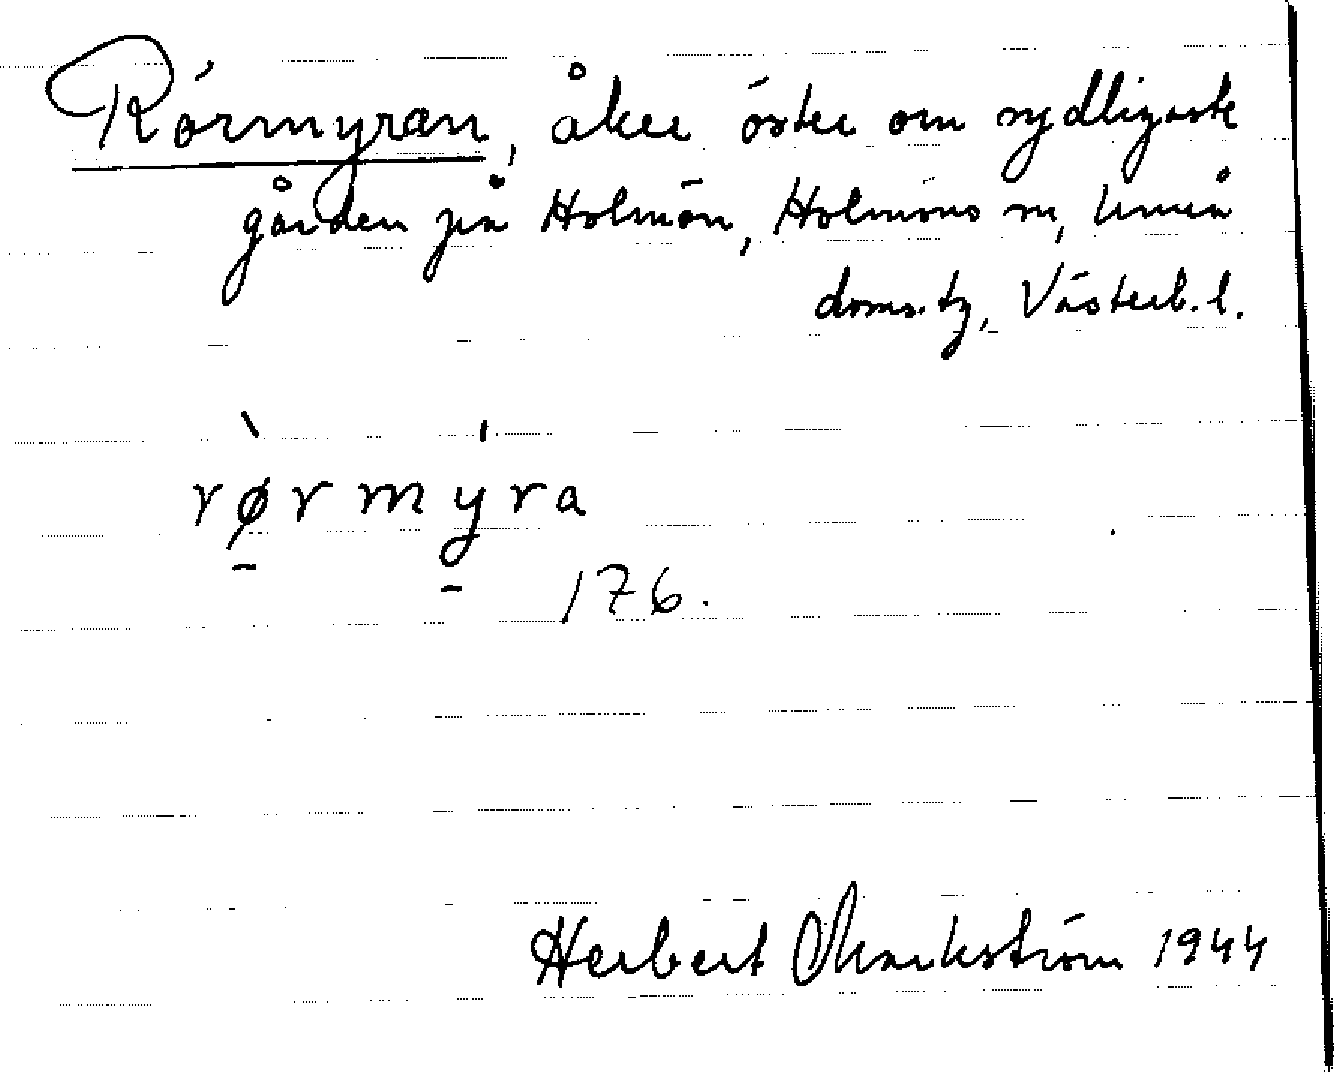 Rörmyran, åker öster om sydligaste
gården på Holmön, Holmöns sn, Umeå
doms.tg, Västerb.l.
rørmyra
176.
Herbert Markström 1944